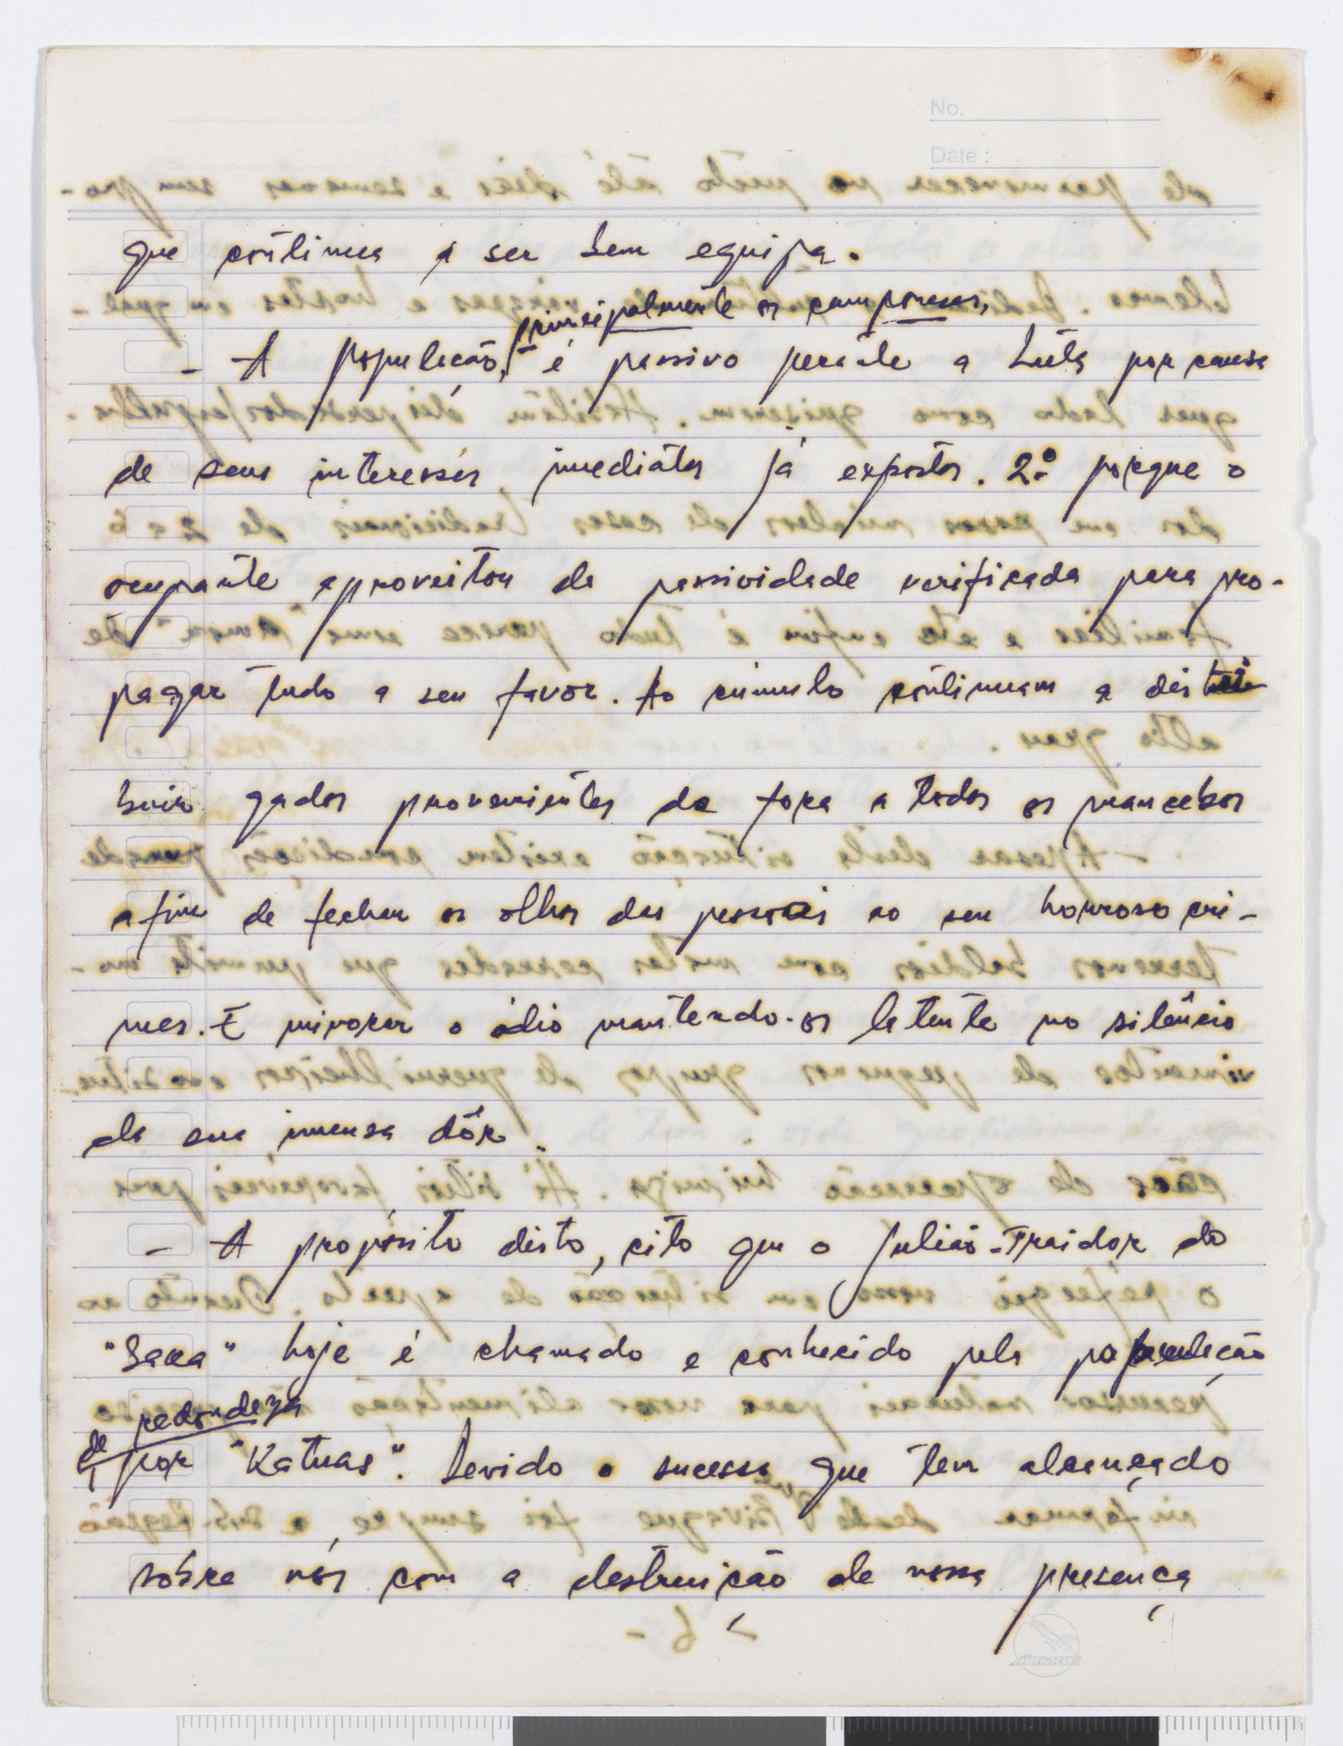 No.
Date:
que continua a ser sem equipa.
principalmente os camponeses,
- A população, é passivo perante a Luta por causa
de seus interesses imediatos já expostos. 2º porque o
ocupante aproveitou da passividade verificada para pro-
pagar tudo a seu favor. Ao cúmulo continuam a dis
buir gados provenientes de fora a todos os mancebos
afim de fechar os olhos das pessoas ao seu honroso cri-
mes. E minorar o ódio mantendo-os latente no silêncio
da sua imensa dôr.
- A propósito disto, cito que o Julião-Traidor do
"Saca" hoje é chamado e conhecido pela população
de redondeza
por "Katuas". Devido o sucesso que tem alcançado
sobre nós com a destruição de nossa presença